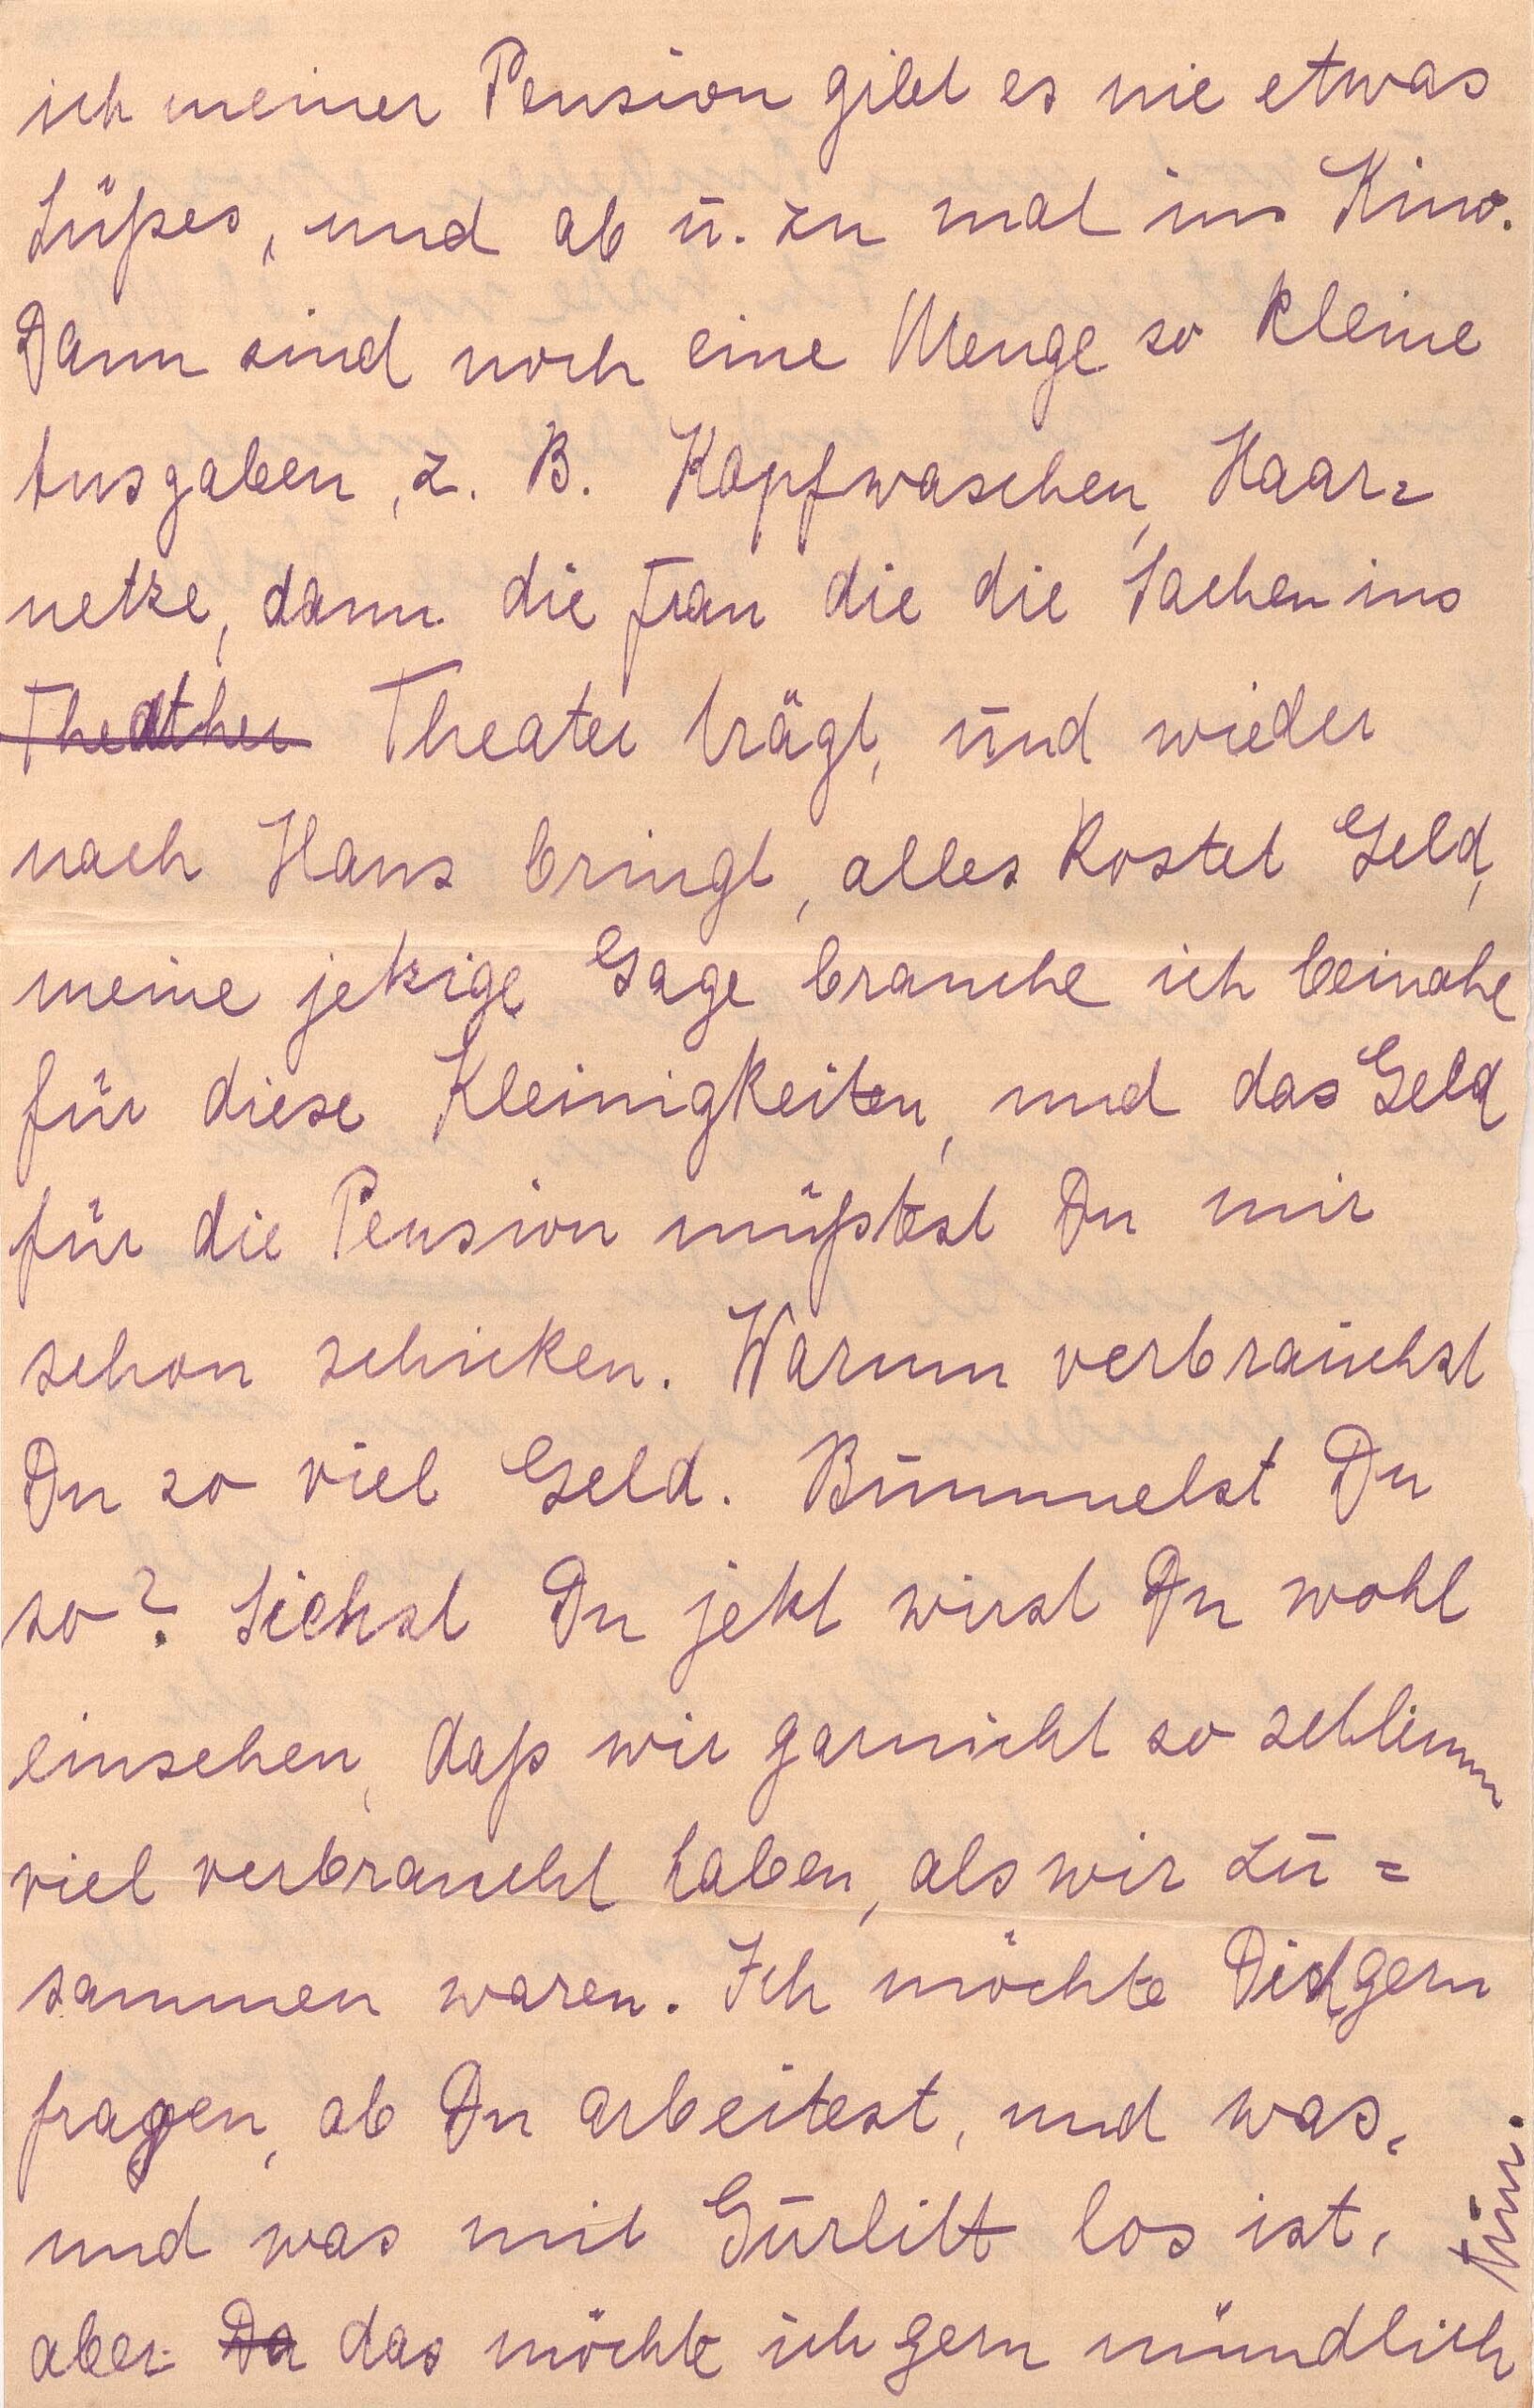 ich meiner Pension gibt es nie etwas
Süßes, und ab ū. zu mal ins Kino.
Dann sind noch eine Menge so kleine
Ausgaben, z. B. Kopfwaschen, Haar=
netze, dann die Frau die die Sachen ins
Theather Theater trägt, und wieder
nach Haus bringt, alles kostet Geld,
meine jetzige Gage brauche ich beinahe
für diese Kleinigkeiten, und das Geld
für die Pension müßtest Du mir
schon schicken. Warum verbrauchst
Du so viel Geld. Bummelst Du
so? Siehst Du jetzt wirst Du wohl
einsehen, daß wir garnicht so schlimm
viel verbraucht haben, als wir zu=
sammen waren. Ich möchte Dich gern
fragen, ob Du arbeitest, und was,
und was mit Gurlitt los ist,
aber Da das möchte ich gern mündlich